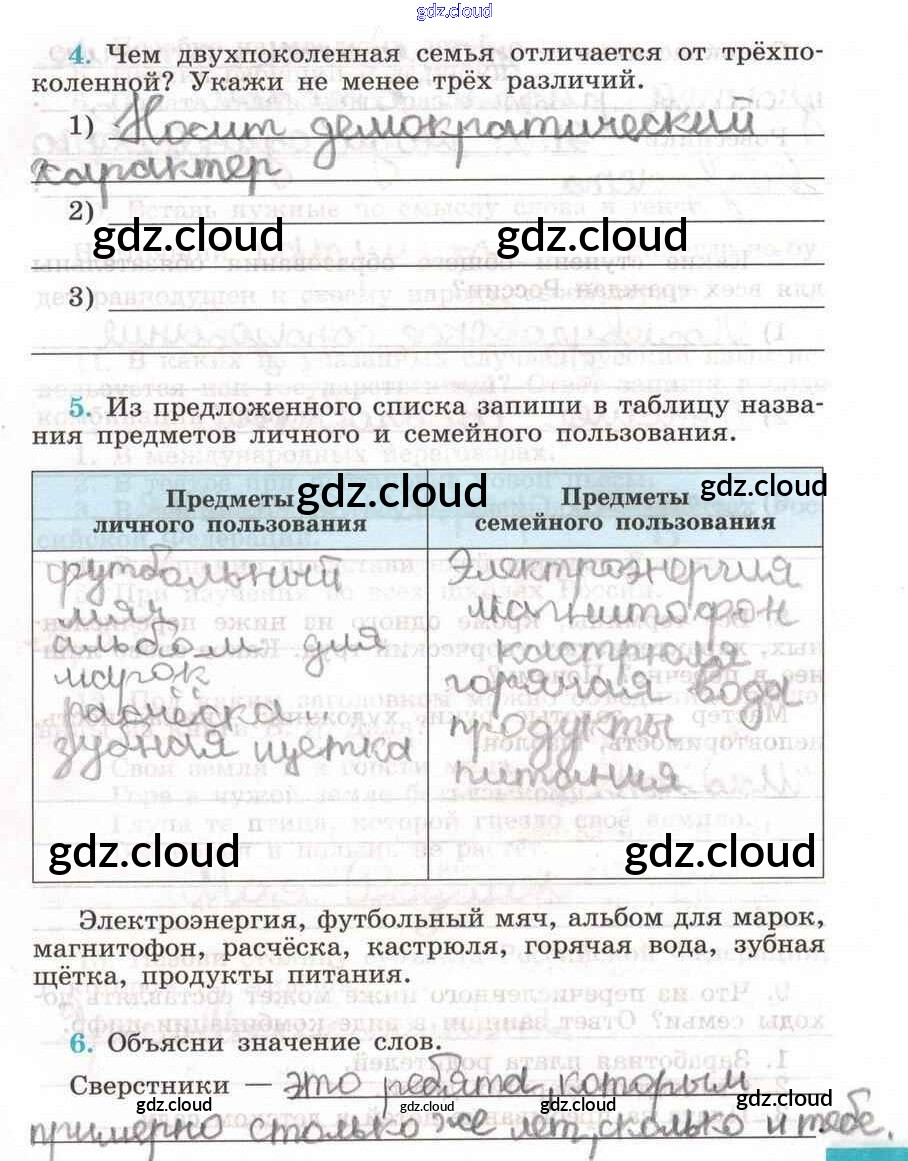 gdz.cloud
4. Чем двухпоколенная семья отличается от трёхпо-
коленной? Укажи не менее трёх различий.
1) Носит демократический
характер
2)
gdz.cloud gdz.cloud
3)
5. Из предложенного списка запиши в таблицу назва-
ния предметов личного и семейного пользования.
Предметы
личного пользования
gdz.cloud
Предметы
семейного пользования
gdz.cloud
футбольный
мяч
альбом для
марок
расчёска
зубная щетка
Электроэнергия
магнитофон
кастрюля
горячая вода
продукты
питания
gdz.cloud gdz.cloud
Электроэнергия, футбольный мяч, альбом для марок,
магнитофон, расчёска, кастрюля, горячая вода, зубная
щётка, продукты питания.
6. Объясни значение слов.
Сверстники — это ребята, которым
gdz.cloud gdz.cloud gdz.cloud gdz.cloud
примерно столько же лет, сколько и тебе.